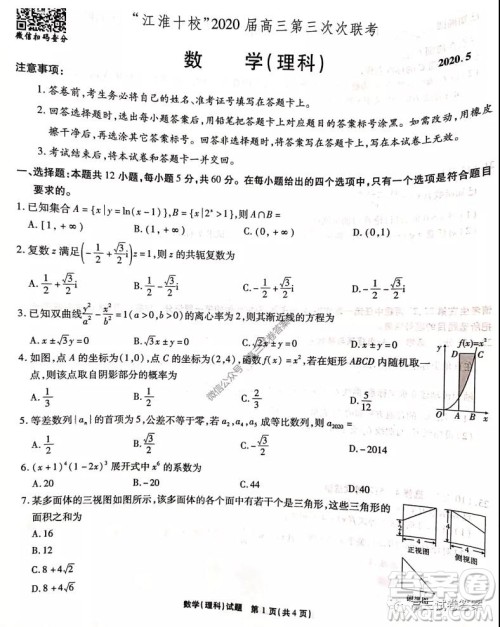 微信扫码查分
“江淮十校”2020届高三第三次次联考
数 学(理科)
2020.5
注意事项：
1.答卷前，考生务必将自己的姓名、准考证号填写在答题卡上。
2.回答选择题时，选出每小题答案后，用铅笔把答题卡上对应题目的答案标号涂黑。如需改动，用橡皮
擦干净后，再选涂其它答案标号。回答非选择题时，将答案写在答题卡上，写在本试卷上无效。
3.考试结束后，将本试卷和答题卡一并交回。
一、选择题：本题共12小题，每小题5分，共60分。在每小题给出的四个选项中，只有一个选项是符合题目
要求的。
1.已知集合A={x|y=ln(x-1)},B={x|2^x>1},则A∩B=
A.[1,+∞) B.(1,+∞) C.(0,+∞) D.(0,1)
2.复数z满足(-1/2+√3/2 i)z=1,则z的共轭复数为
A.1/2+√3/2 i B.-1/2+√3/2 i C.-1/2-√3/2 i D.1/2-√3/2 i
3.已知双曲线y²/a²-x²/b²=1(a>0,b>0)的离心率为2,则其渐近线的方程为
A.x±√3y=0 B.√3x±y=0 C.√2x±y=0 D.x±√2y=0
4.如图,点A的坐标为(1,0),点C的坐标为(2,4),函数f(x)=x²,若在矩形ABCD内随机取一
点,则该点取自阴影部分的概率为
A.1/3 B.1/2 C.2/3 D.5/12
f(x)=x²
5.等差数列{aₙ}的首项为5,公差不等于零.若a₂,a₄,a₅成等比数列,则a₂₀₂₀=
A.1/2 B.3/2 D.-2014
6.(x+1)⁴(1-2x)³展开式中x⁶的系数为
A.20 B.-20 C.44 D.40
7.某多面体的三视图如图所示,该多面体的各个面中有若干个是三角形,这些三角形的
面积之和为
A.16
B.12
C.8+4√2
D.8+4√6
正视图
侧视图
数学(理科)试题 第1页(共4页)